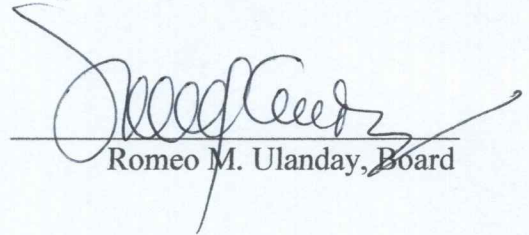 Romeo M. Ulanday, Board